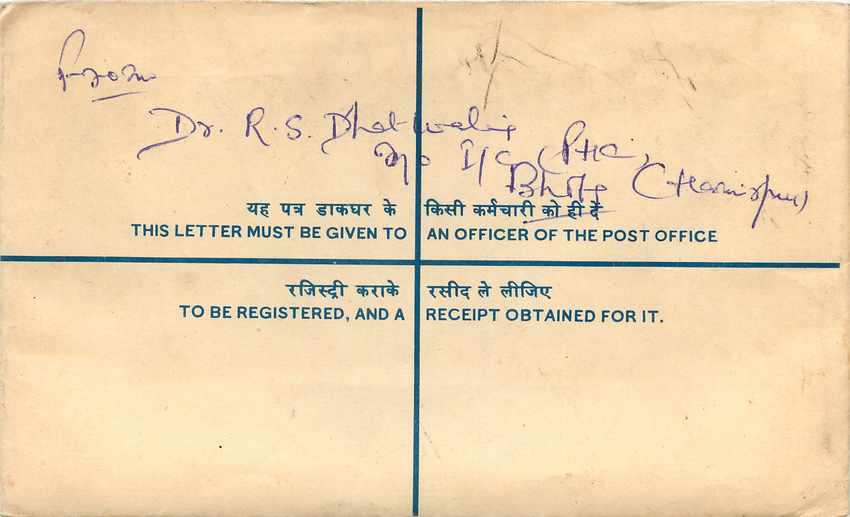 From
Dr. R. S. Dhatwalia
M/O I/C (PHC,
(Hamirpur)
यह पत्र डाकघर के किसी कर्मचारी को ही दें
THIS LETTER MUST BE GIVEN TO AN OFFICER OF THE POST OFFICE
रजिस्ट्री कराके रसीद ले लीजिए
TO BE REGISTERED, AND A RECEIPT OBTAINED FOR IT.